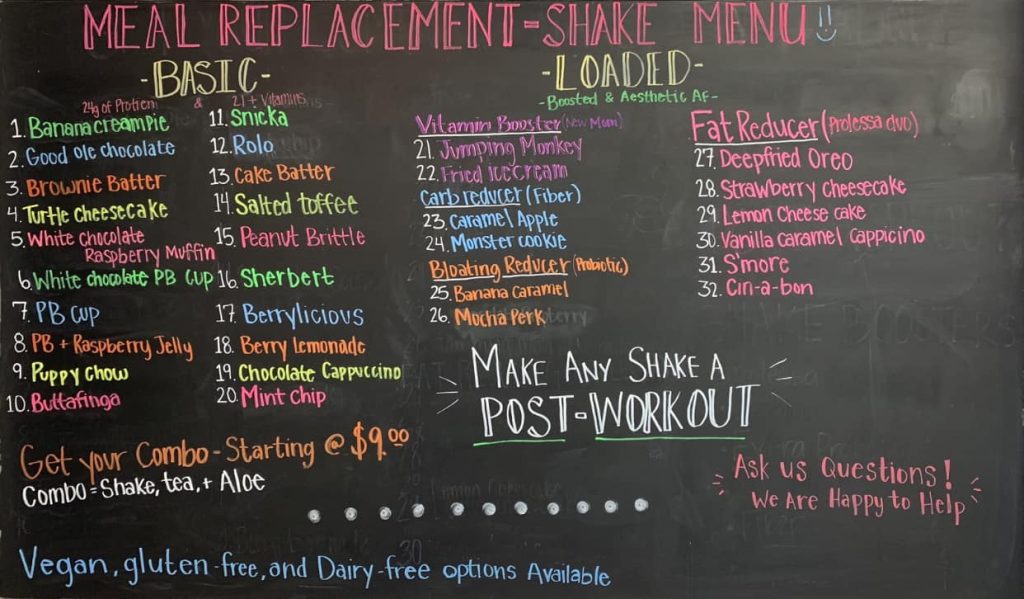 MEAL REPLACEMENT-SHAKE MENU!
-BASIC-
24g of Protien & 21+ Vitamins
1. Banana cream Pie
2. Good ole chocolate
3. Brownie Batter
4. Turtle cheesecake
5. White chocolate
Raspberry Muffin
6. White chocolate PB Cup
7. PB Cup
8. PB + Raspberry Jelly
9. Puppy Chow
10. Buttafinga
11. Snicka
12. Rolo
13. Cake Batter
14. Salted toffee
15. Peanut Brittle
16. Sherbert
17. Berrylicious
18. Berry lemonade
19. Chocolate Cappuccino
20. Mint chip
-LOADED-
-Boosted & Aesthetic AF-
Vitamin Booster (New Mom)
21. Jumping Monkey
22. Fried Ice cream
Carb reducer (Fiber)
23. Caramel Apple
24. Monster cookie
Bloating Reducer (Probiotic)
25. Banana Caramel
26. Mocha Perk
Fat Reducer (Prolessa duo)
27. Deepfried Oreo
28. Strawberry cheesecake
29. Lemon Cheese cake
30. Vanilla caramel Cappicino
31. S'more
32. Cin-a-bon
MAKE ANY SHAKE A
POST-WORKOUT
Get your Combo - Starting @ $9.00
Combo = Shake, tea, + Aloe
Ask us Questions!
We Are Happy to Help
Vegan, gluten-free, and Dairy-free options Available